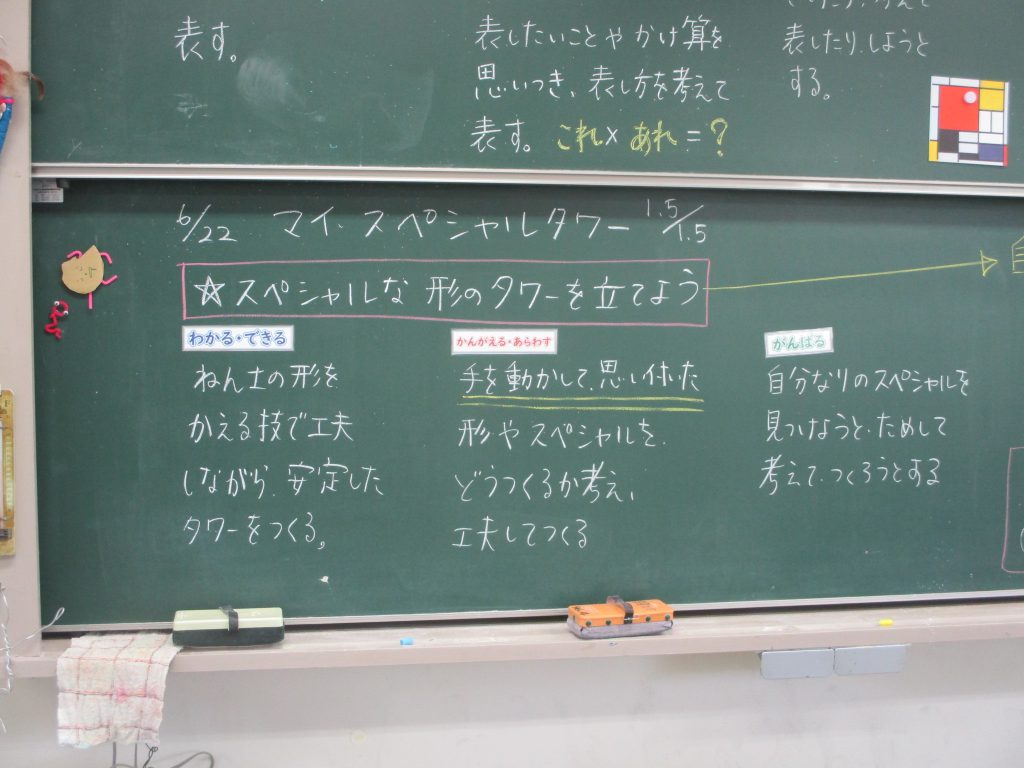 表す。
表したいことやかけ算を
思いつき、表し方を考えて
表す。これ×あれ=?
表したり、しようと
する。
6/22 マイ・スペシャルタワー 1.5/1.5
☆スペシャルな形のタワーを立てよう
わかる・できる
ねん土の形を
かえる技で工夫
しながら、安定した
タワーをつくる。
かんがえる・あらわす
手を動かして、思い付いた
形やスペシャルを、
どうつくるか考え、
工夫してつくる
がんばる
自分なりのスペシャルを
見つけようと、ためして
考えて、つくろうとする